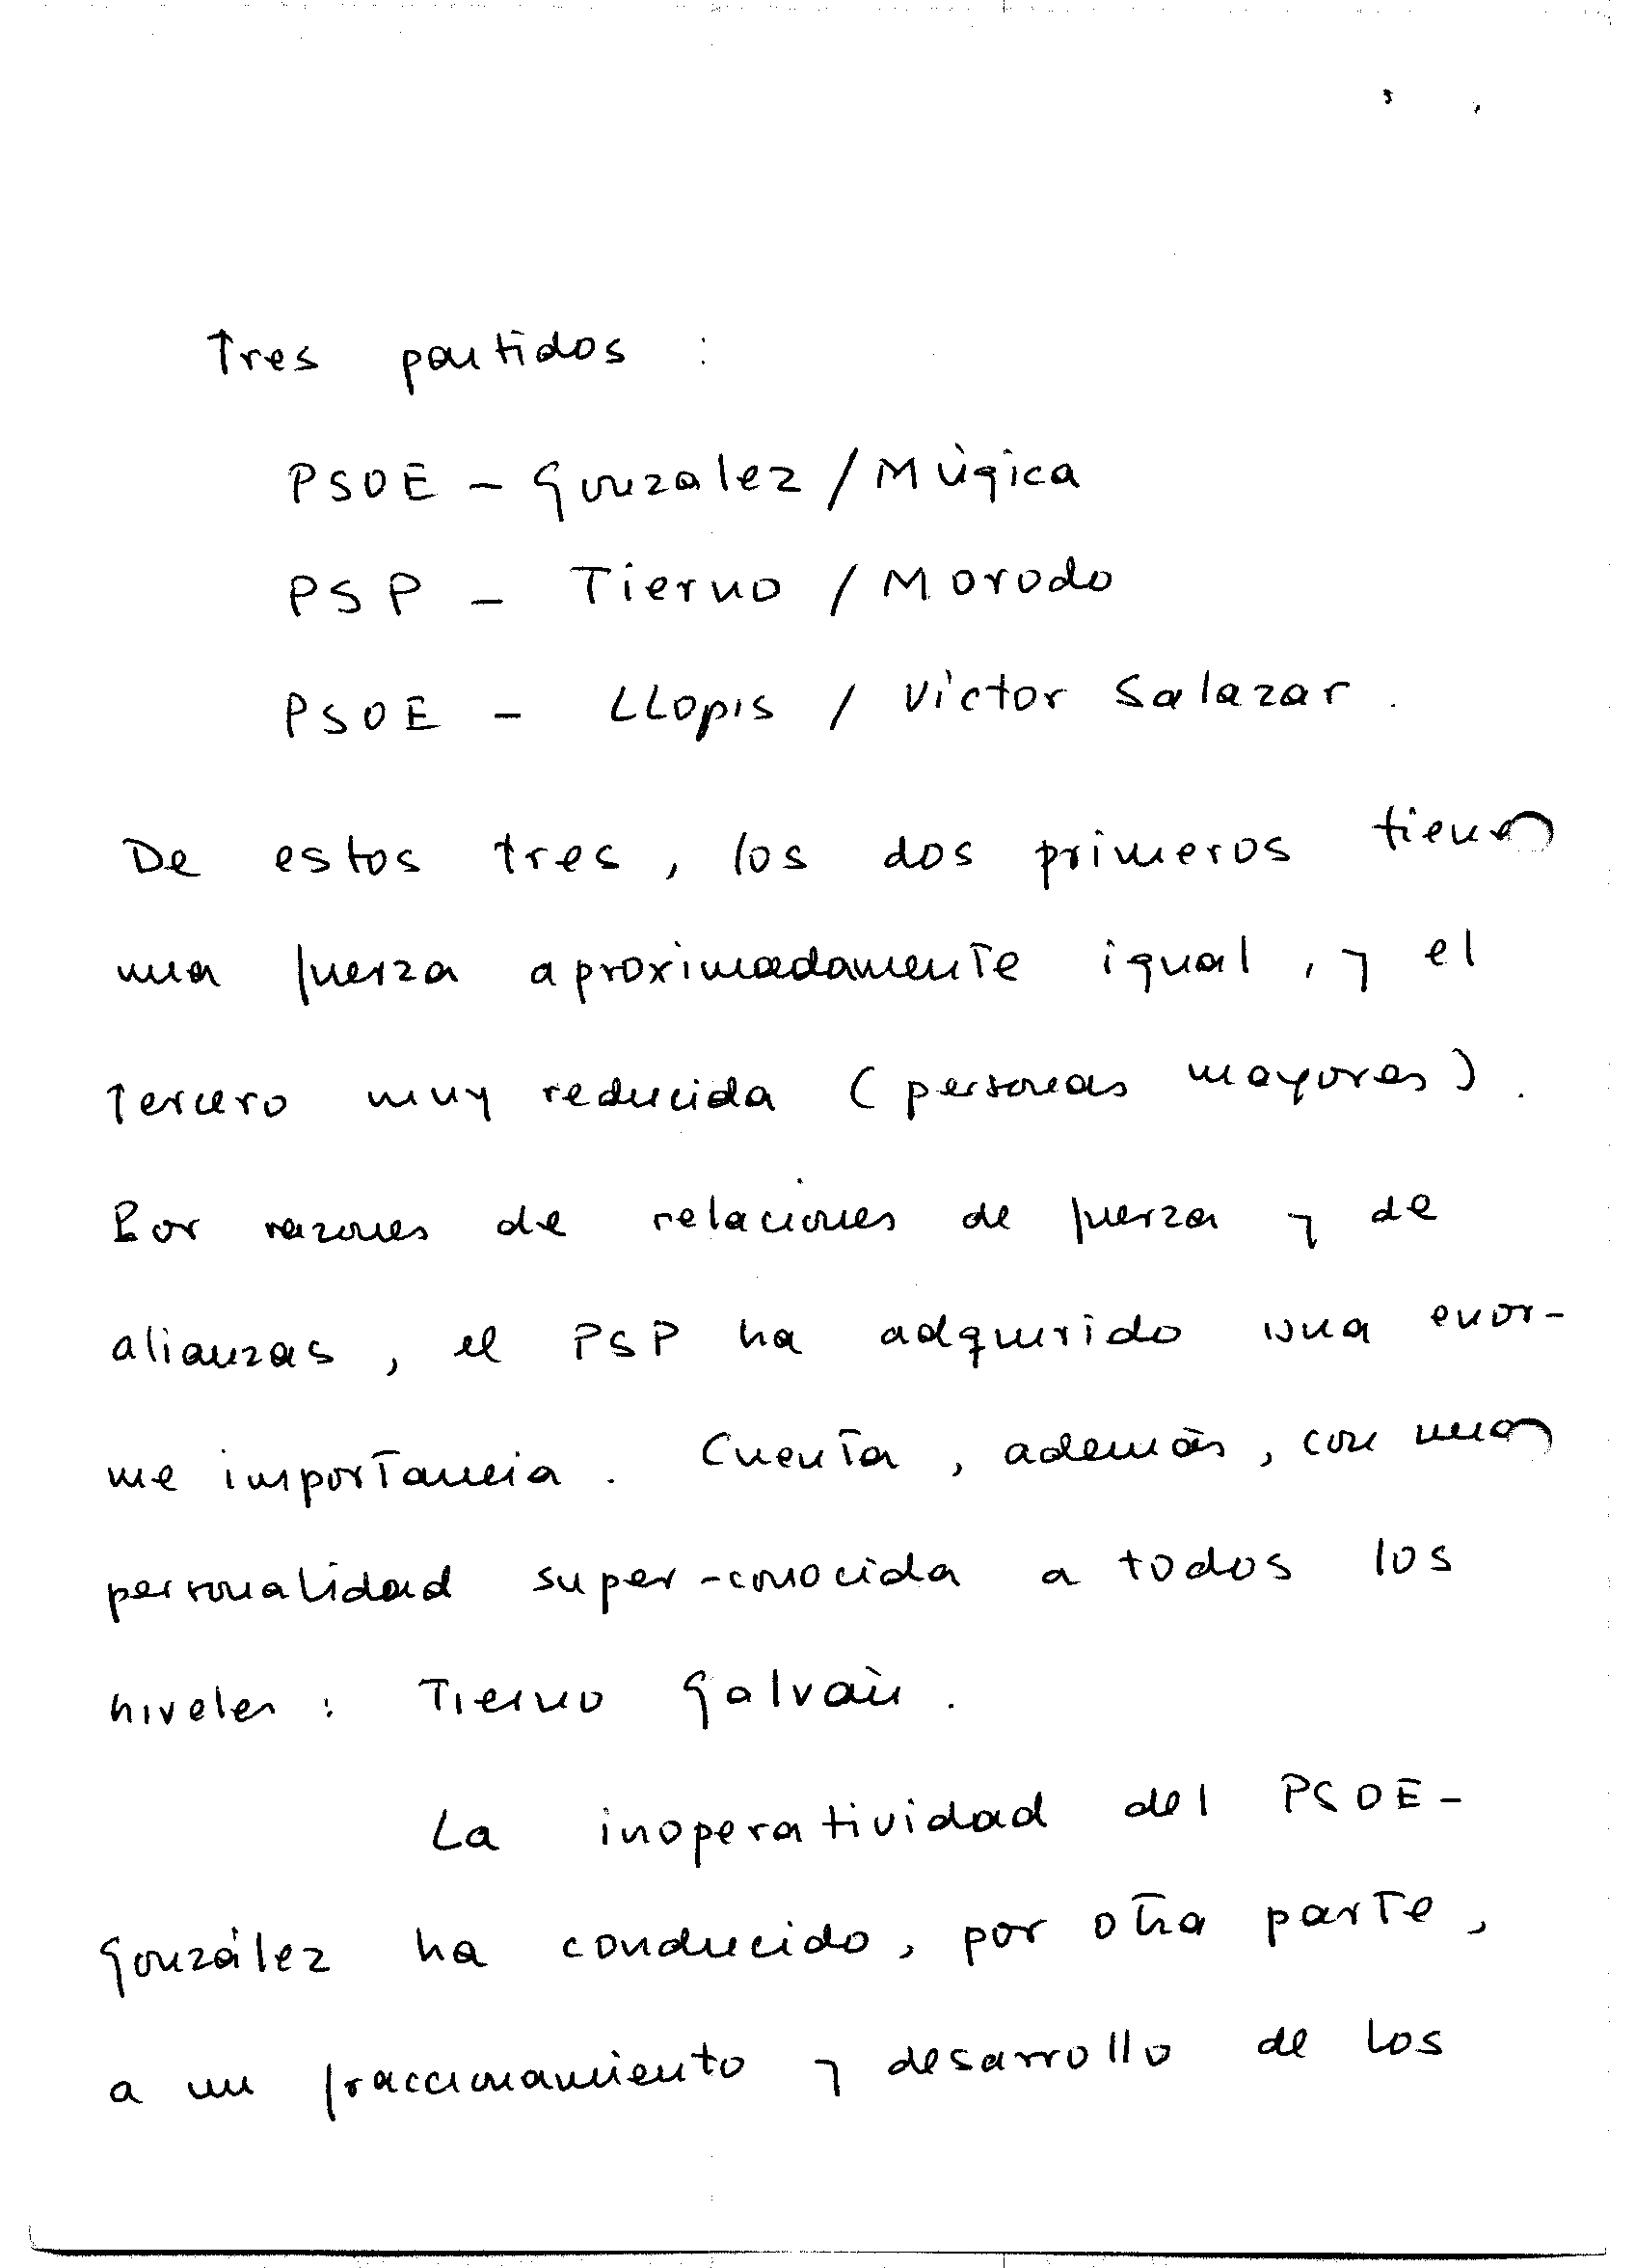 Tres partidos :
PSOE - Gonzalez / Múgica
PSP - Tierno / Morodo
PSOE - LLopis / Víctor Salazar.
De estos tres, los dos primeros tienen
una fuerza aproximadamente igual, y el
tercero muy reducida (personas mayores).
Por razones de relaciones de fuerza y de
alianzas, el PSP ha adquirido una enor-
me importancia. Cuenta, además, con una
personalidad super-conocida a todos los
niveles: Tierno Galván.
La inoperatividad del PSOE-
González ha conducido, por otra parte,
a un fraccionamiento y desarrollo de los